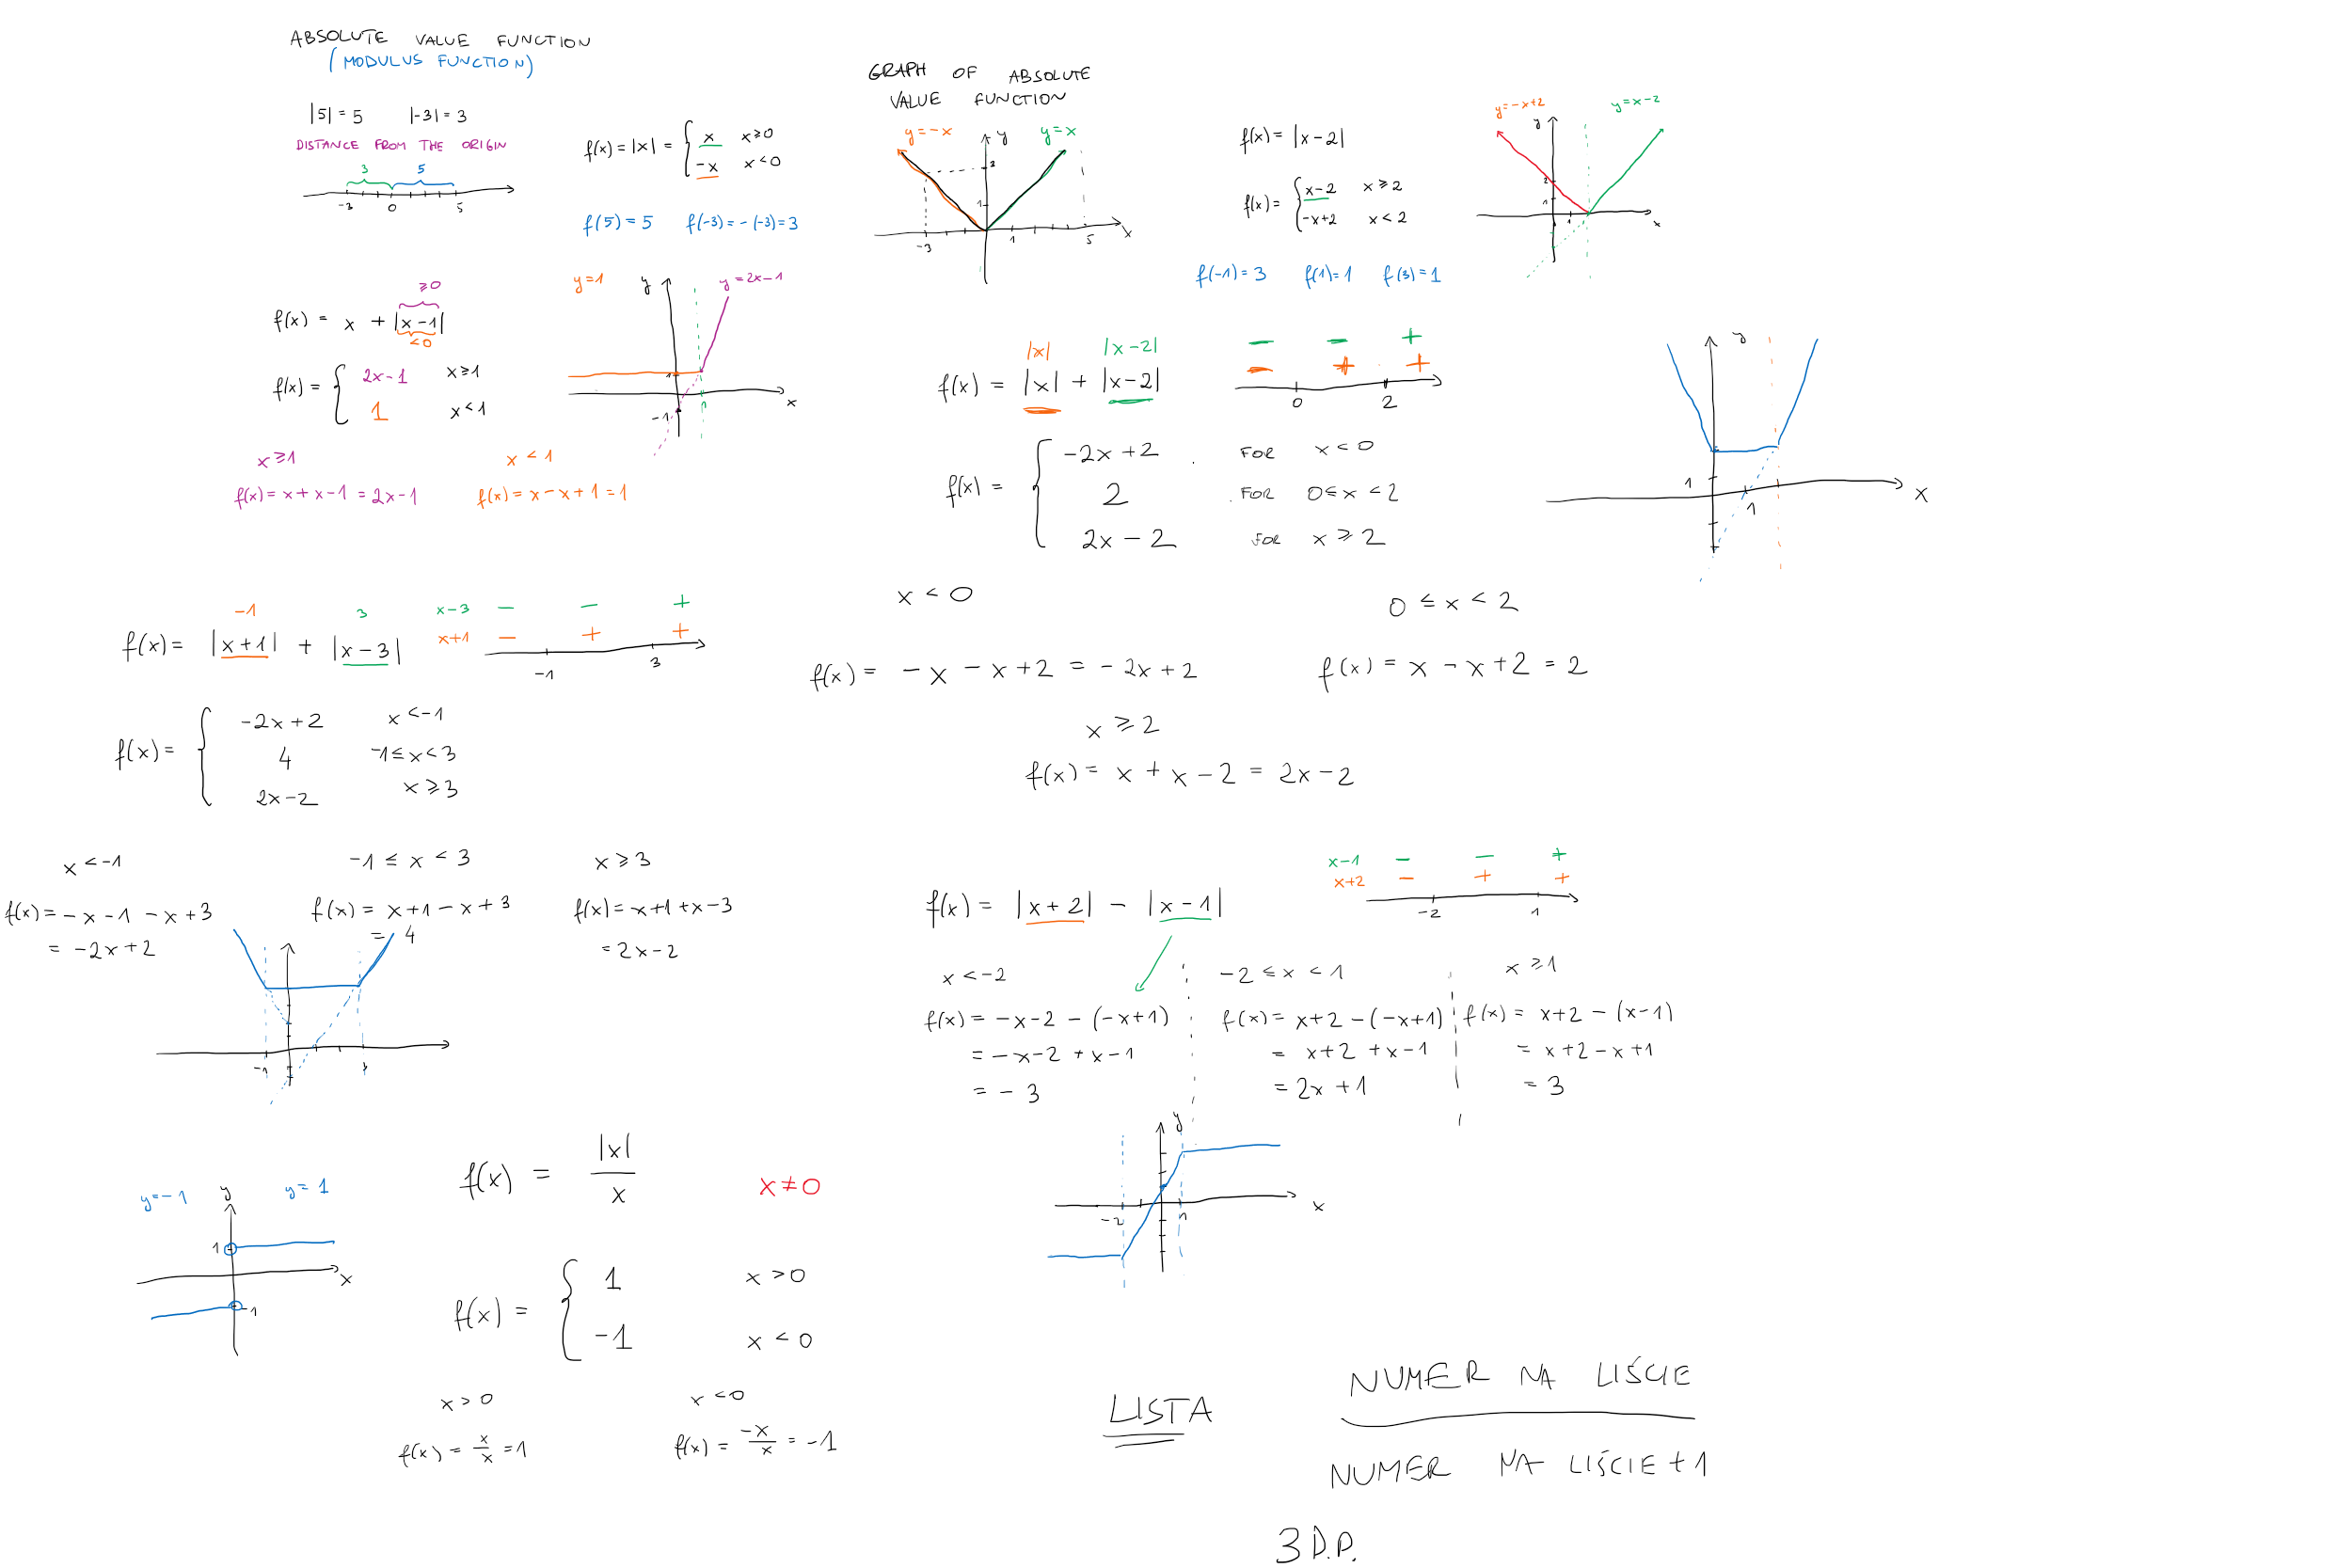 ABSOLUTE VALUE FUNCTION
(MODULUS FUNCTION)
|5| = 5 |-3| = 3
DISTANCE FROM THE ORIGIN
3 5
-3 0 5
f(x) = |x| = { x x≥0
-x x<0
f(5) = 5 f(-3) = -(-3) = 3
GRAPH OF ABSOLUTE
VALUE FUNCTION
y=-x y y=x
2
1
-3 1 5 x
f(x) = |x-2|
f(x) = { x-2 x≥2
-x+2 x<2
f(-1) = 3 f(1) = 1 f(3) = 1
y=-x+2 y y=x-2
2
1
1 x
≥0
f(x) = x + |x-1|
<0
f(x) = { 2x-1 x≥1
1 x<1
x≥1
f(x) = x+x-1 = 2x-1
x<1
f(x) = x-x+1 = 1
y=1 y y=2x-1
1
-1 1 x
|x| |x-2|
f(x) = |x| + |x-2|
- - +
- + +
0 2
f(x) = { -2x+2 FOR x<0
2 FOR 0≤x<2
2x-2 FOR x≥2
y
1
1 x
x<0
f(x) = -x-x+2 = -2x+2
0≤x<2
f(x) = x-x+2 = 2
x≥2
f(x) = x+x-2 = 2x-2
-1 3
f(x) = |x+1| + |x-3|
x-3 - - +
x+1 - + +
-1 3
f(x) = { -2x+2 x<-1
4 -1≤x<3
2x-2 x≥3
x<-1
f(x) = -x-1-x+3
= -2x+2
-1≤x<3
f(x) = x+1-x+3
= 4
x≥3
f(x) = x+1+x-3
= 2x-2
-1
f(x) = |x+2| - |x-1|
x-1 - - +
x+2 - + +
-2 1
x<-2
f(x) = -x-2-(-x+1)
= -x-2+x-1
= -3
-2≤x<1
f(x) = x+2-(-x+1)
= x+2+x-1
= 2x+1
x≥1
f(x) = x+2-(x-1)
= x+2-x+1
= 3
y
-2 1 x
f(x) = |x|
x
x≠0
y=-1 y y=1
1
x
-1
f(x) = { 1 x>0
-1 x<0
x>0
f(x) = x/x = 1
x<0
f(x) = -x/x = -1
LISTA
NUMER NA LIŚCIE
NUMER NA LIŚCIE+1
3 D.P.